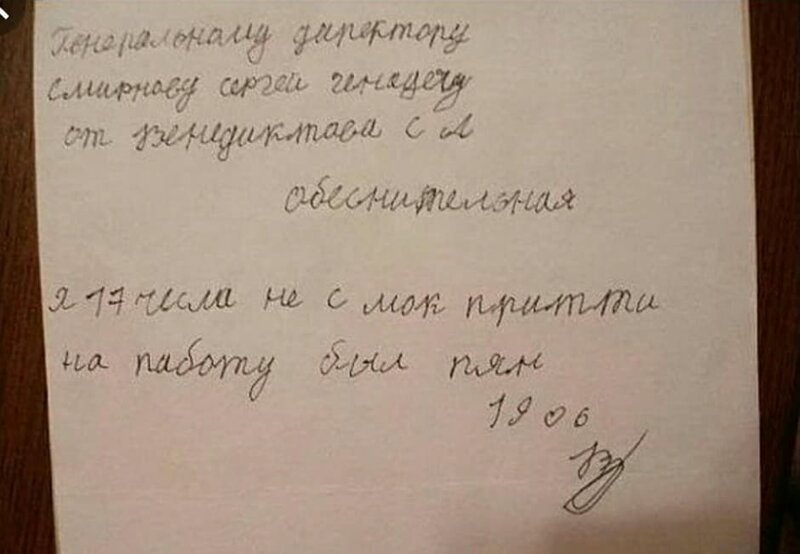 Генеральному директору
Смирнову сергей генадечу
от Венедиктова С А
обеснительная
я 17 чесла не с мок притти
на работу был пян
19 06